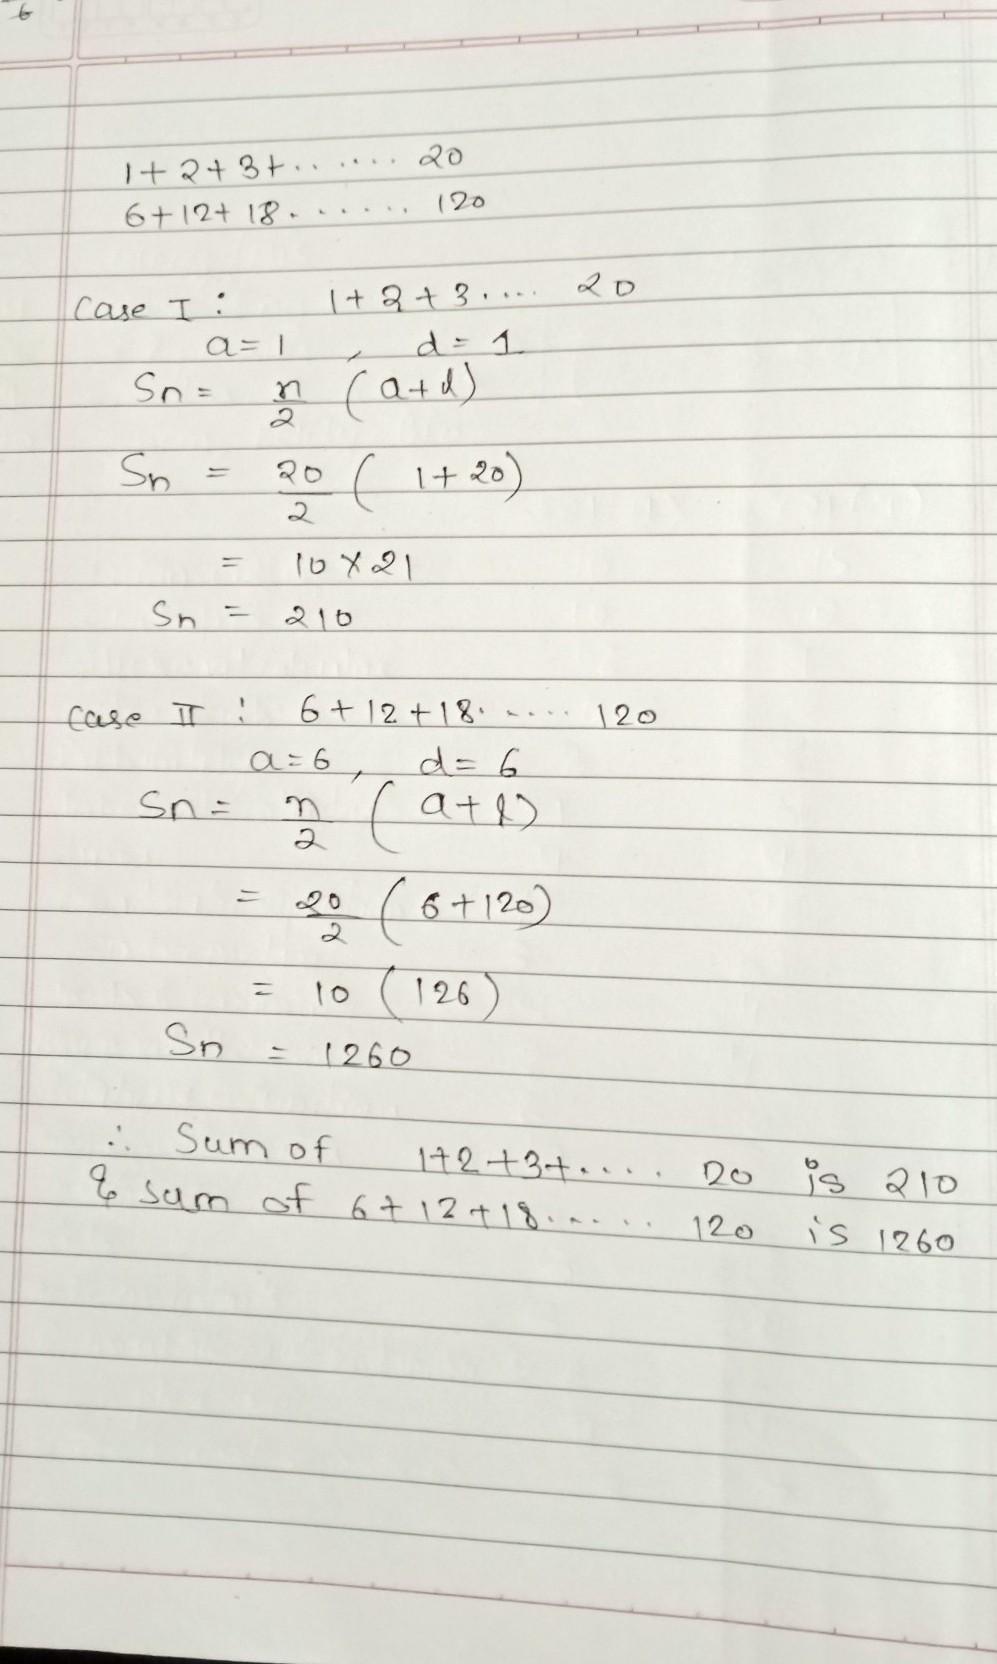 6
1+2+3+....... 20
6+12+18....... 120
Case I : 1+2+3..... 20
a=1 , d=1
Sn = n/2 (a+l)
Sn = 20/2 (1+20)
= 10×21
Sn = 210
Case II : 6+12+18...... 120
a=6, d=6
Sn = n/2 (a+l)
= 20/2 (6+120)
= 10 (126)
Sn = 1260
∴ Sum of 1+2+3+..... 20 is 210
& sum of 6+12+18...... 120 is 1260